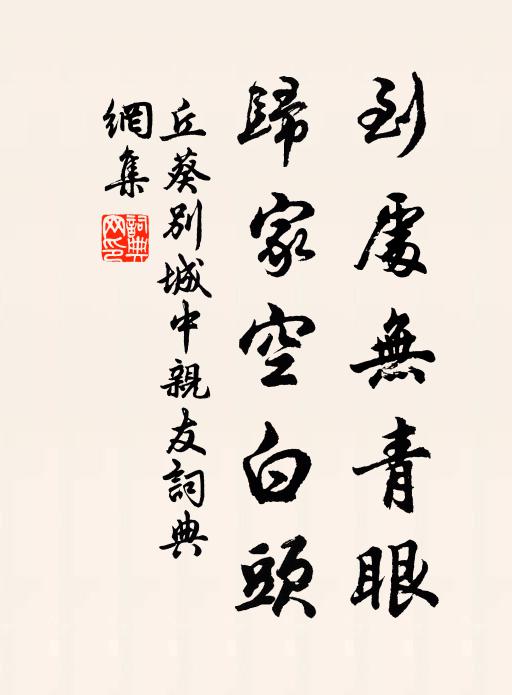 到處無青眼
歸家空白頭
丘葵別城中親友詞典
網集
詞典
网印